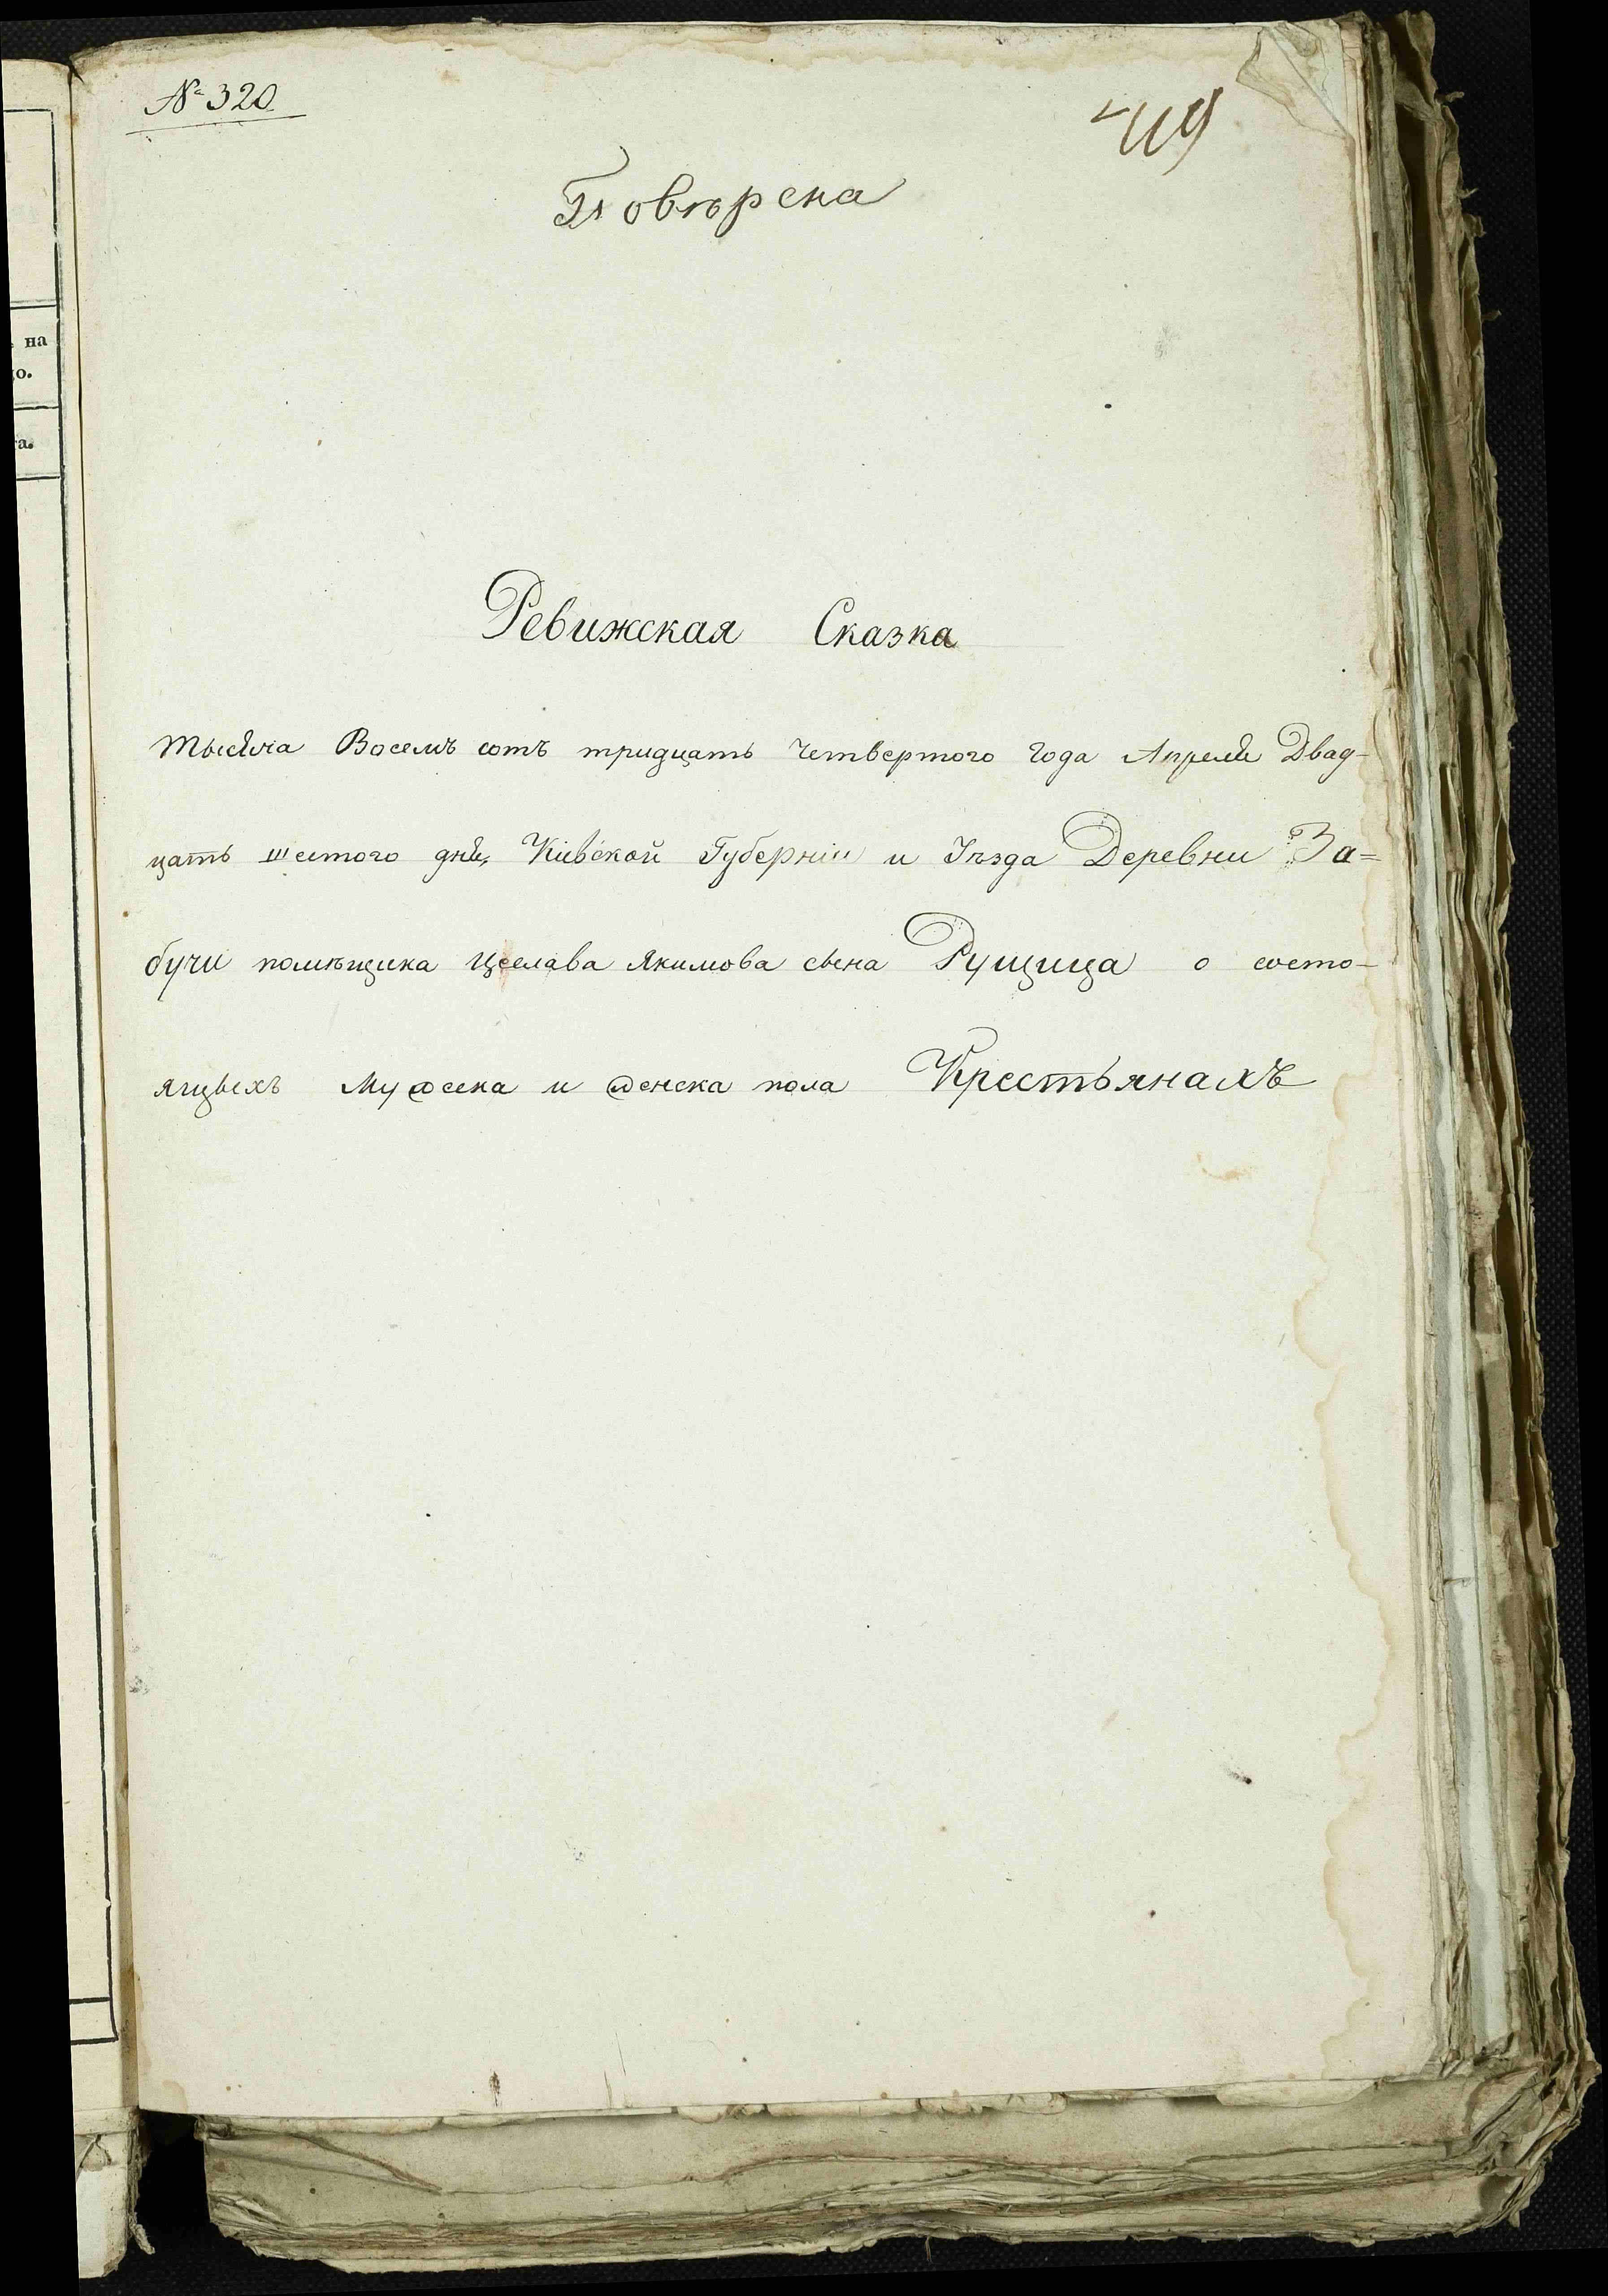 № 320
419
Повѣрена
на
о.
а.
Ревижская Сказка
тысяча Восемъ сотъ тридцать четвертого года Апреля Двад-
цать шестого дня, Кіевской Губерніи и Уѣзда Деревни За=
бучи помѣщика Цеслава Якимова сына Рущица о состо-
ящыхъ мужеска и женска пола Крестьянахъ